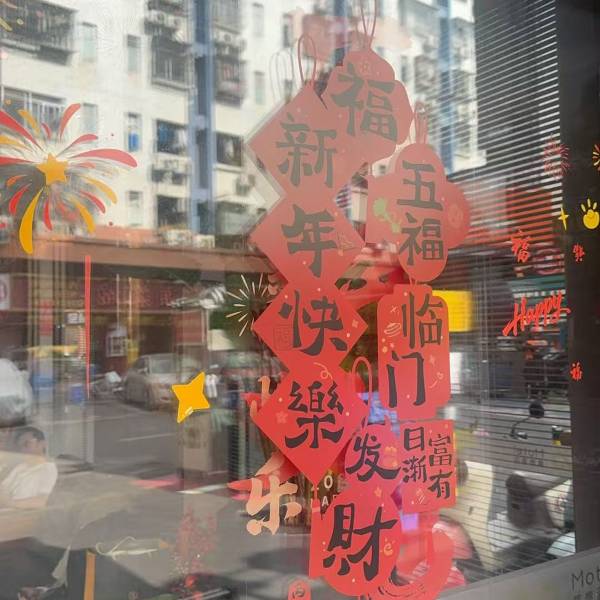 福
新年快樂
五福
临门
日渐
富有
发財
乐
福
Happy
福